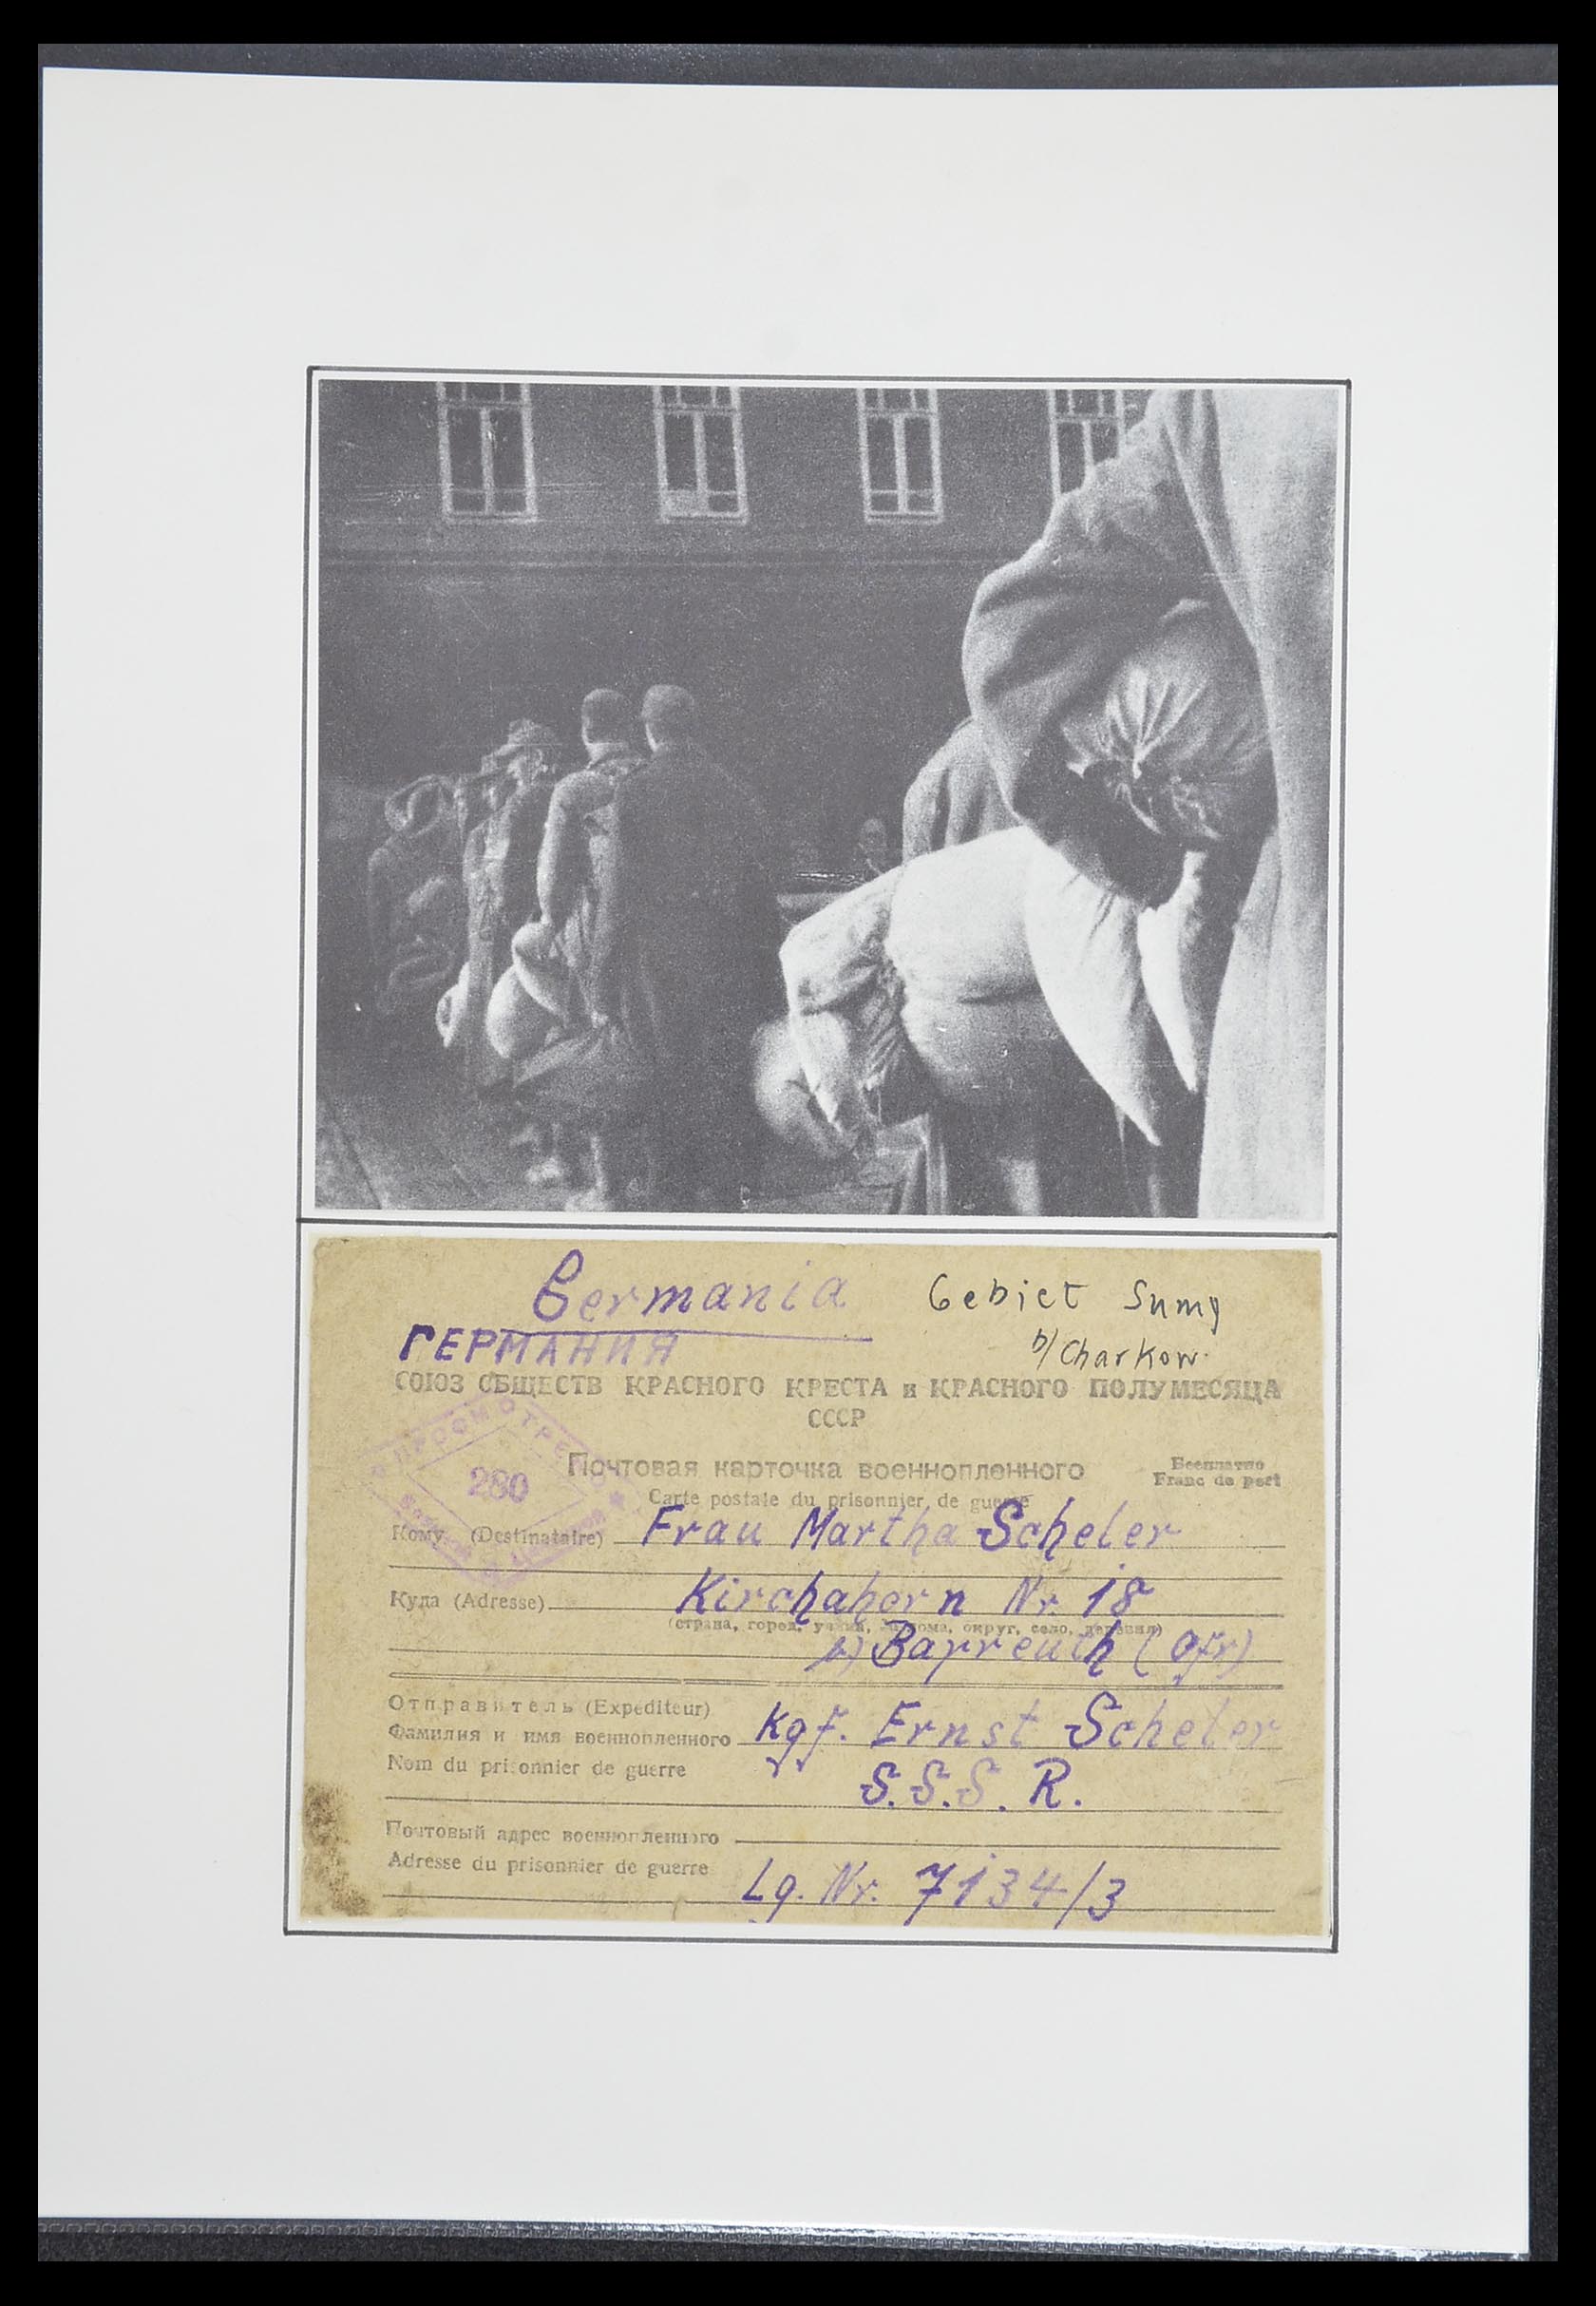 Germania
Gebiet Sumy
b/ Charkow.
ГЕРМАНИЯ
СОЮЗ ОБЩЕСТВ КРАСНОГО КРЕСТА и КРАСНОГО ПОЛУМЕСЯЦА
СССР
ПРОСМОТРЕНО
280
Почтовая карточка военнопленного
Бесплатно
Carte postale du prisonnier de guerre
Franc de port
Кому (Destinataire) Frau Martha Scheler
Куда (Adresse) Kirchahorn Nr. 18
(страна, город, улица, № дома, округ, село, деревня)
b) Bayreuth (Ofr)
Отправитель (Expéditeur)
Фамилия и имя военнопленного Kgf. Ernst Scheler
Nom du prisonnier de guerre
S.S.S.R.
Почтовый адрес военнопленного
Adresse du prisonnier de guerre
Lg. Nr. 7134/3